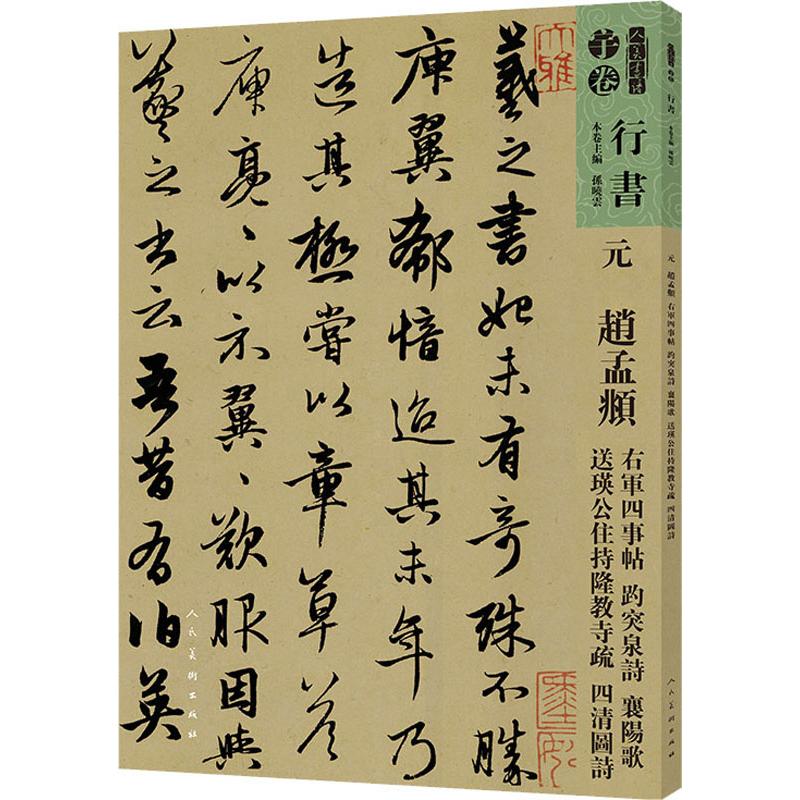 人美書譜
卷
行書
本卷主編 孫曉雲
元
趙孟頫
右軍四事帖 趵突泉詩 襄陽歌
送瑛公住持隆教寺疏 四清圖詩
大雅
羲之書始未有奇殊不勝
庾翼郗愔迨其末年乃
造其極嘗以章草答
庾亮〻以示翼〻歎服因與
羲之書云吾昔有伯英
人民美術出版社
行書
本卷主編 孫曉雲
元 趙孟頫 右軍四事帖 趵突泉詩 襄陽歌 送瑛公住持隆教寺疏 四清圖詩
人民美術出版社